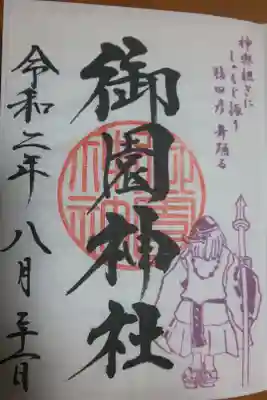 神輿担ぎに
しゃもじ振り
猿田彦舞踊る
御園神社
令和二年八月三十一日